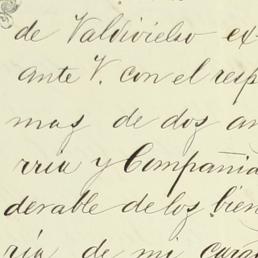 de Valdivielso ex
ante V. con el resp
mas de dos an
rria y Compañia
derable de los bien
ria de mi cara